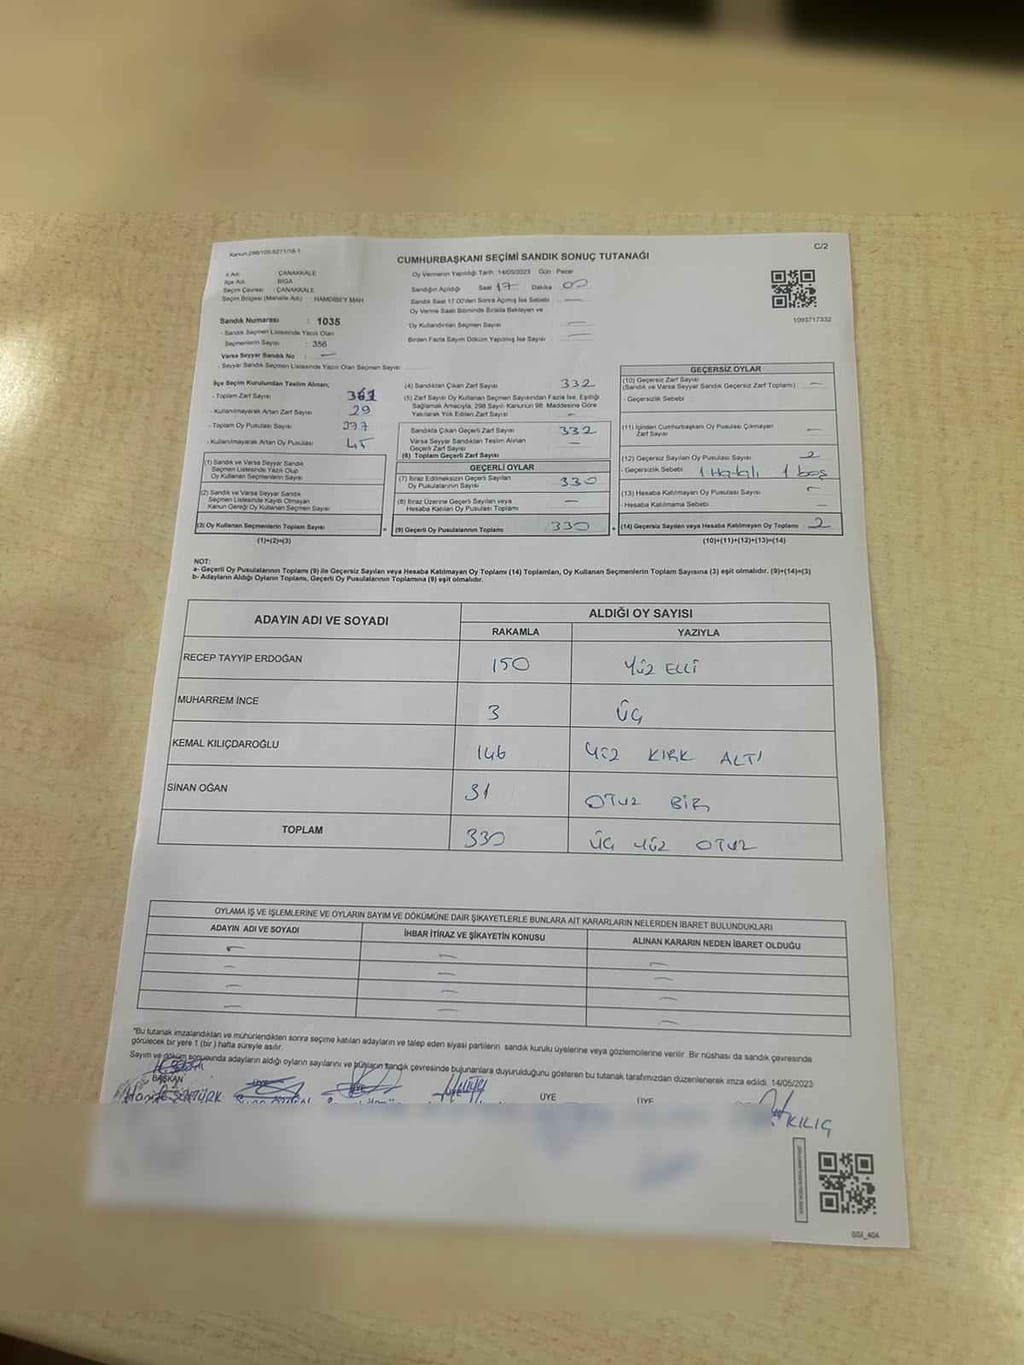 C/2
CUMHURBAŞKANI SEÇİMİ SANDIK SONUÇ TUTANAĞI
İl Adı : ÇANAKKALE
İlçe Adı : BİGA
Seçim Çevresi : ÇANAKKALE
Seçim Bölgesi (Mahalle Adı) HAMDİBEY MAH
Sandık Numarası : 1035
- Sandık Seçmen Listesinde Yazılı Olan
Seçmenlerin Sayısı : 356
Varsa Seyyar Sandık No —
- Seyyar Sandık Seçmen Listesinde Yazılı Olan Seçmen Sayısı
Oy Vermenin Yapıldığı Tarih :14/05/2023 Gün : Pazar
Sandığın Açıldığı Saat 17 Dakika 00
Sandık Saat 17.00'den Sonra Açılmış İse Sebebi —
Oy Verme Saati Bitiminde Sırada Bekleyen ve
Oy Kullandırılan Seçmen Sayısı —
Birden Fazla Sayım Döküm Yapılmış İse Sayısı —
1093717332
İlçe Seçim Kurulundan Teslim Alınan;
- Toplam Zarf Sayısı 361
- Kullanılmayarak Artan Zarf Sayısı 29
- Toplam Oy Pusulası Sayısı 377
- Kullanılmayarak Artan Oy Pusulası 45
(1) Sandık ve Varsa Seyyar Sandık
Seçmen Listesinde Yazılı Olup
Oy Kullanan Seçmenlerin Sayısı
(2) Sandık ve Varsa Seyyar Sandık
Seçmen Listesinde Kayıtlı Olmayan
Kanun Gereği Oy Kullanan Seçmen Sayısı
(3) Oy Kullanan Seçmenlerin Toplam Sayısı
(1)+(2)=(3)
(4) Sandıktan Çıkan Zarf Sayısı 332
(5) Zarf Sayısı Oy Kullanan Seçmen Sayısından Fazla İse, Eşitliği
Sağlamak Amacıyla, 298 Sayılı Kanunun 98. Maddesine Göre
Yakılarak Yok Edilen Zarf Sayısı —
Sandıkta Çıkan Geçerli Zarf Sayısı 332
Varsa Seyyar Sandıktan Teslim Alınan
Geçerli Zarf Sayısı —
(6) Toplam Geçerli Zarf Sayısı
GEÇERLİ OYLAR
(7) İtiraz Edilmeksizin Geçerli Sayılan
Oy Pusulalarının Sayısı 330
(8) İtiraz Üzerine Geçerli Sayılan veya
Hesaba Katılan Oy Pusulası Toplamı —
= (9) Geçerli Oy Pusulalarının Toplamı 330
GEÇERSİZ OYLAR
(10) Geçersiz Zarf Sayısı
(Sandık ve Varsa Seyyar Sandık Geçersiz Zarf Toplamı) —
- Geçersizlik Sebebi
(11) İçinden Cumhurbaşkanı Oy Pusulası Çıkmayan
Zarf Sayısı —
(12) Geçersiz Sayılan Oy Pusulası Sayısı 2
- Geçersizlik Sebebi 1 Hatalı 1 boş
(13) Hesaba Katılmayan Oy Pusulası Sayısı —
- Hesaba Katılmama Sebebi —
+ (14) Geçersiz Sayılan veya Hesaba Katılmayan Oy Toplamı 2
(10)+(11)+(12)+(13)=(14)
NOT:
a- Geçerli Oy Pusulalarının Toplamı (9) ile Geçersiz Sayılan veya Hesaba Katılmayan Oy Toplamı (14) Toplamları, Oy Kullanan Seçmenlerin Toplam Sayısına (3) eşit olmalıdır. (9)+(14)=(3)
b- Adayların Aldığı Oyların Toplamı, Geçerli Oy Pusulalarının Toplamına (9) eşit olmalıdır.
ADAYIN ADI VE SOYADI ALDIĞI OY SAYISI
RAKAMLA YAZIYLA
RECEP TAYYİP ERDOĞAN 150 YÜZ ELLİ
MUHARREM İNCE 3 ÜÇ
KEMAL KILIÇDAROĞLU 146 YÜZ KIRK ALTI
SİNAN OĞAN 31 OTUZ BİR
TOPLAM 330 ÜÇ YÜZ OTUZ
OYLAMA İŞ VE İŞLEMLERİNE VE OYLARIN SAYIM VE DÖKÜMÜNE DAİR ŞİKAYETLERLE BUNLARA AİT KARARLARIN NELERDEN İBARET BULUNDUKLARI
ADAYIN ADI VE SOYADI İHBAR İTİRAZ VE ŞİKAYETİN KONUSU ALINAN KARARIN NEDEN İBARET OLDUĞU
"Bu tutanak imzalandıktan ve mühürlendikten sonra seçime katılan adayların ve talep eden siyasi partilerin sandık kurulu üyelerine veya gözlemcilerine verilir. Bir nüshası da sandık çevresinde
görülecek bir yere 1 (bir) hafta süreyle asılır.
Sayım ve döküm sonucunda adayların aldığı oyların sayılarını ve bunların sandık çevresinde bulunanlara duyurulduğunu gösteren bu tutanak tarafımızdan düzenlenerek imza edildi. 14/05/2023
BAŞKAN ÜYE ÜYE
KILIÇ